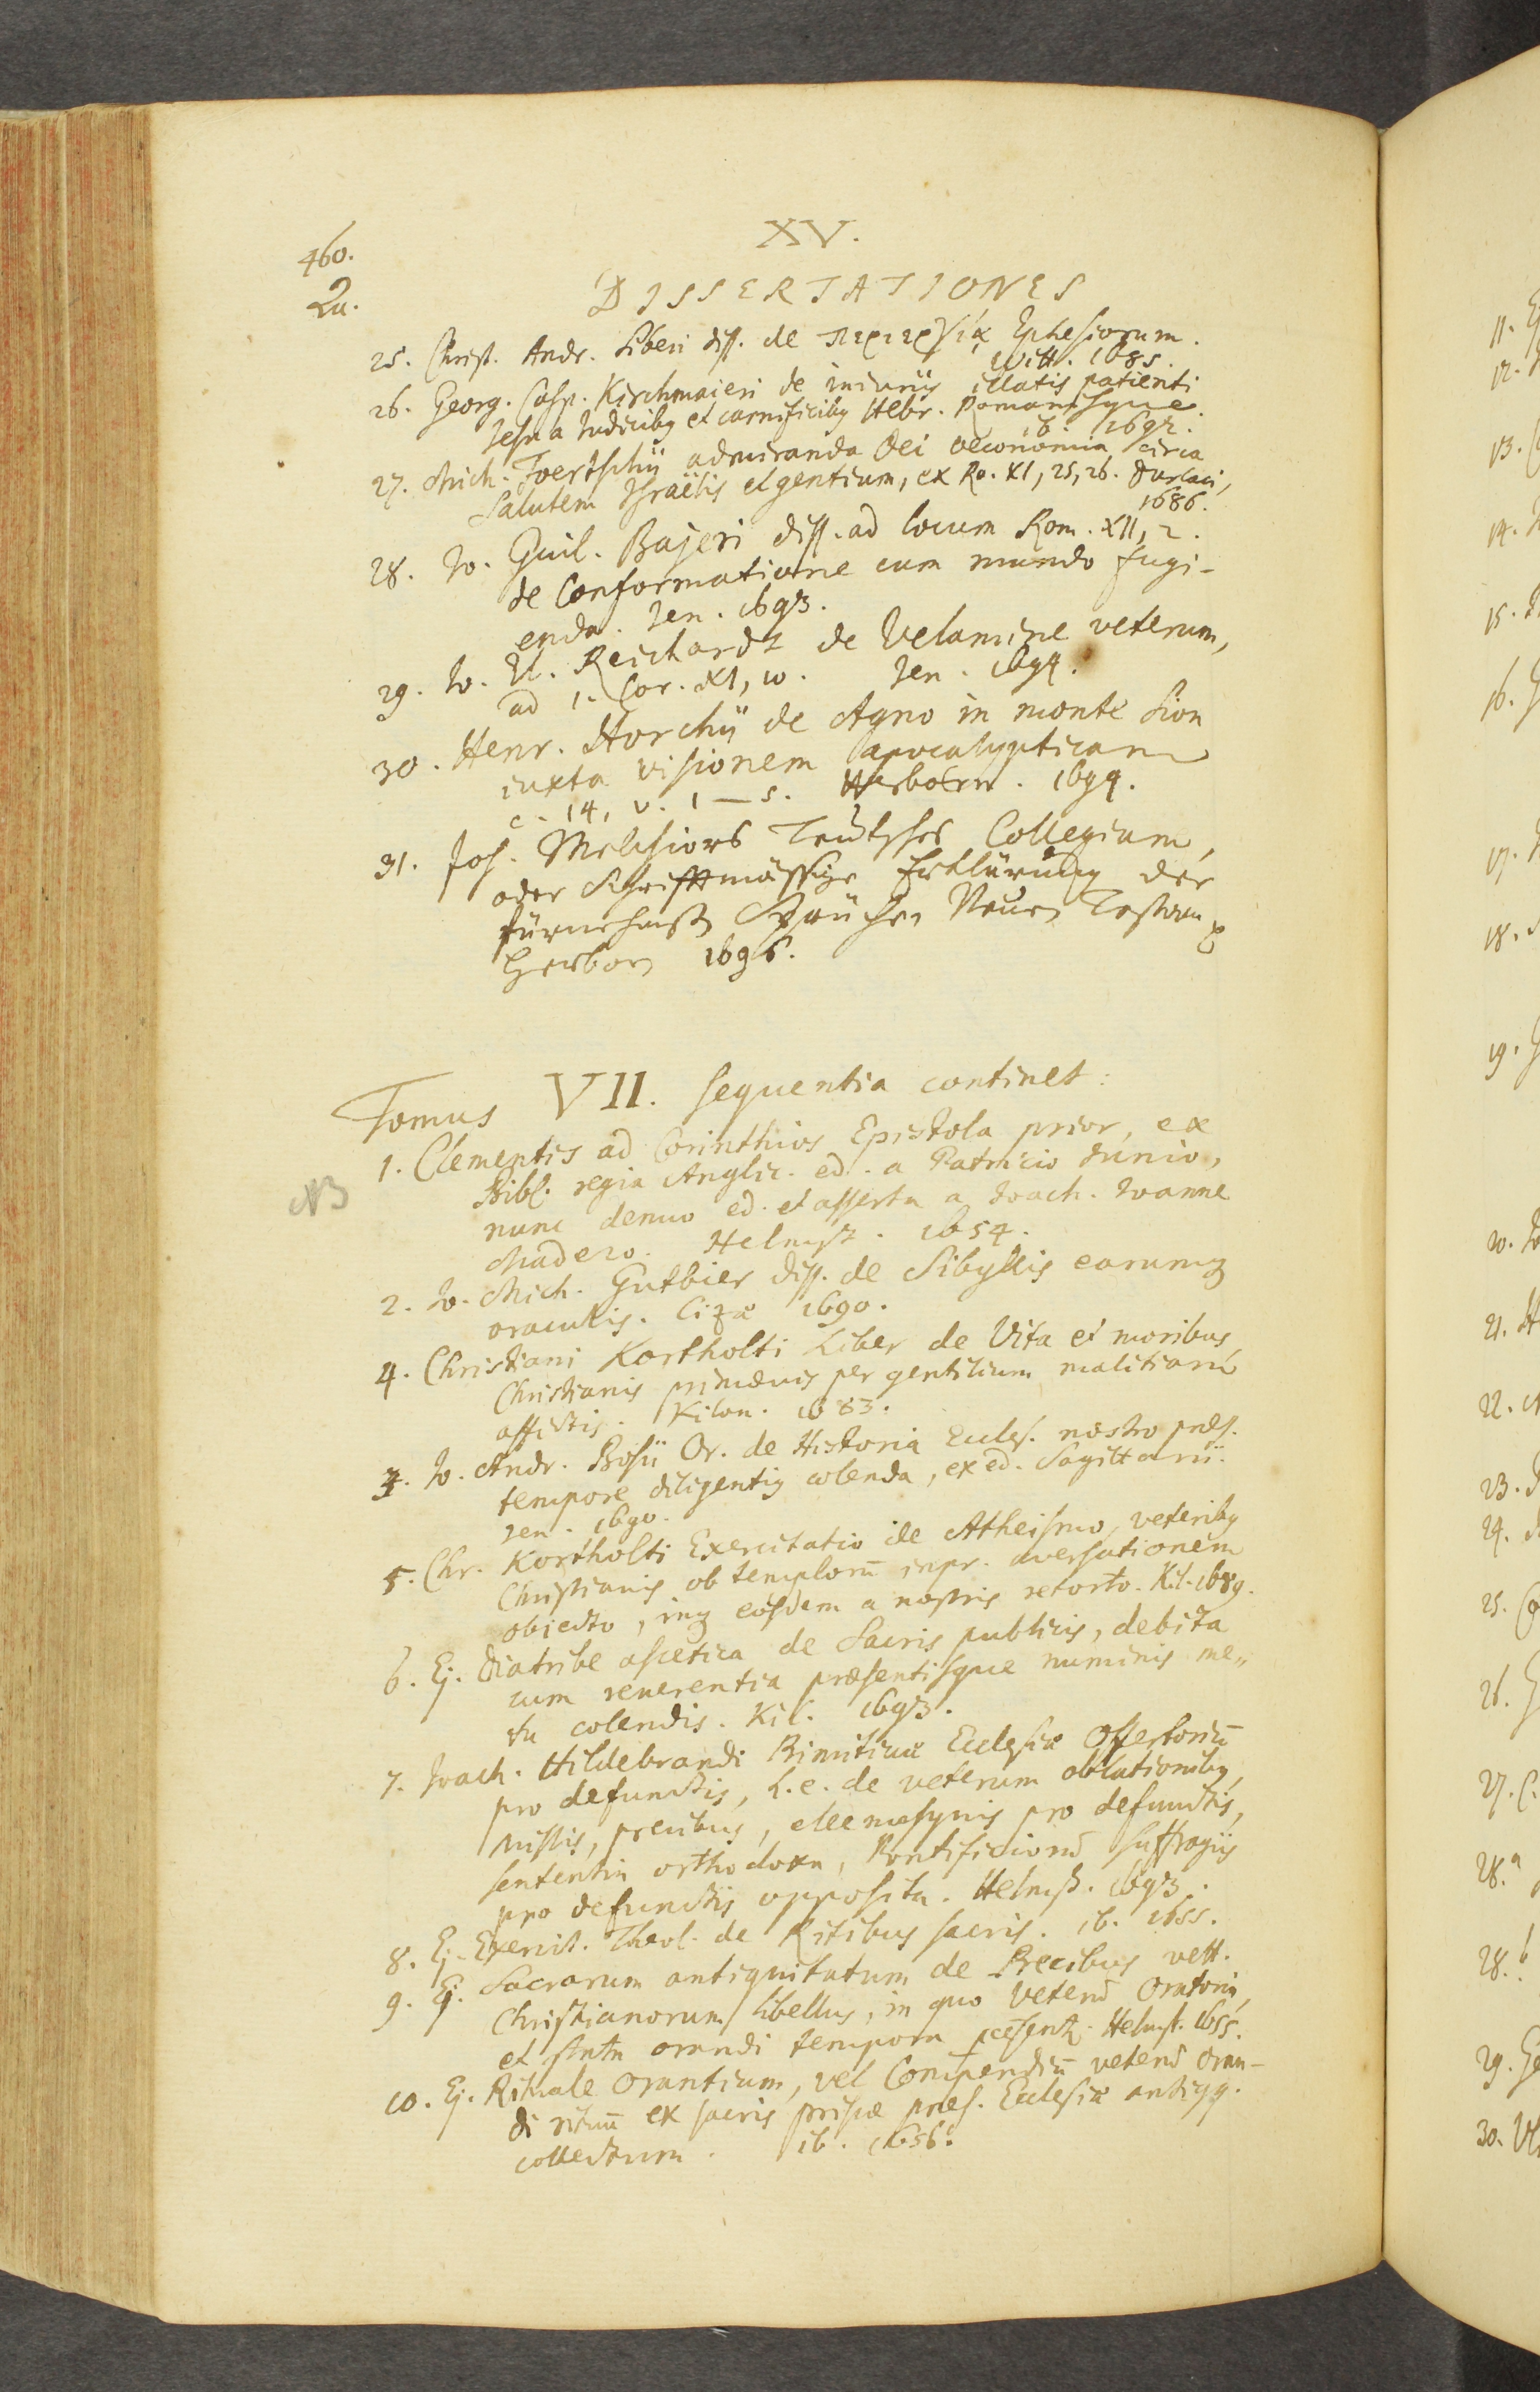 XV.
460.
Qu.
DISSERTATIONES
25. Christ. Andr. Siberi diss. de περιεργίᾳ Ephesiorum.
Witt. 1685.
26. Georg. Casp. Kirchmaieri de iniuriis illatis patienti
Jesu a Judicibq et carnificibq Hebr. Romanisque.
ib. 1692.
27. Mich. Foertschii admiranda Dei oeconomia circa
Salutem Israëlis et gentium, ex Ro. XI, 25, 26. Durlaci,
1686.
28. Jo. Guil. Bajeri diss. ad locum Rom. XII, 2.
de Conformatione cum mundo fugi-
enda. Jen. 1693.
29. Jo. U. Reichardt de Velamine veterum,
ad 1. Cor. XI, 10. Jen. 1694.
30. Henr. Horchii de Agno in monte Sion
iuxta visionem apocalypticam
c. 14, v. 1—5. Herborn. 1694.
31. Joh. Melchiors Teutsches Collegium,
oder Schrifftmässige Erklärung der
fürnehmst Sprüchen Neuen Testam
Herborn 1696.
Tomus VII. sequentia continet:
1. Clementis ad Corinthios Epistola prior, ex
NB
Bibl. regia Anglic. ed. a Patricio Junio,
nunc denuo ed. et asserta a Joach. Joanne
Madero. Helmst. 1654.
2. Jo. Mich. Gutbier diss. de Sibyllis earumq
oraculis. Cizæ 1690.
4. Christiani Kortholti Liber de Vita et moribus
Christianis primævis per gentilium malitiam
afflictis. Kilon. 1683.
3. Jo. Andr. Bosii Or. de Historia Eccles. nostro præs.
tempore diligentiq colenda, ex ed. Sagittarii.
Jen. 1690.
5. Chr. Kortholti Exercitatio de Atheismo, veteribq
Christianis ob templorū inpr. aversationem
obiecto, inq eosdem a nostris retorto. Kil. 1689.
6. Ej. Diatribe ascetica de Sacris publicis, debita
cum reverentia præsentisque numinis me,,
tu colendis. Kil. 1693.
7. Joach. Hildebrandi Primitivæ Ecclesiæ Offertoriū
pro defunctis, h.e. de veterum oblationibq,
missis, precibus, eleemosynis pro defunctis,
sententia orthodoxa, Pontificiorū suffragiis
pro defunctis opposita. Helmst. 1693.
8. Ej. Exercit. Theol. de Ritibus sacris. ib. 1655.
9. Ej. Sacrarum antiquitatum de Precibus vett.
Christianorum libellus, in quo veterū Oratoria,
et stata orandi tempora Helmst. 1655.
10. Ej. Rituale Orantium, vel Compendiū veterū Oran-
di rituū ex sacris priscæ præs. Ecclesiæ antiqq.
collectum. ib. 1656.
11.
12.
13.
14.
15.
16.
17.
18.
19.
20.
21.
22.
23.
24.
25.
26.
27.
28.a
28.b
29.
30.